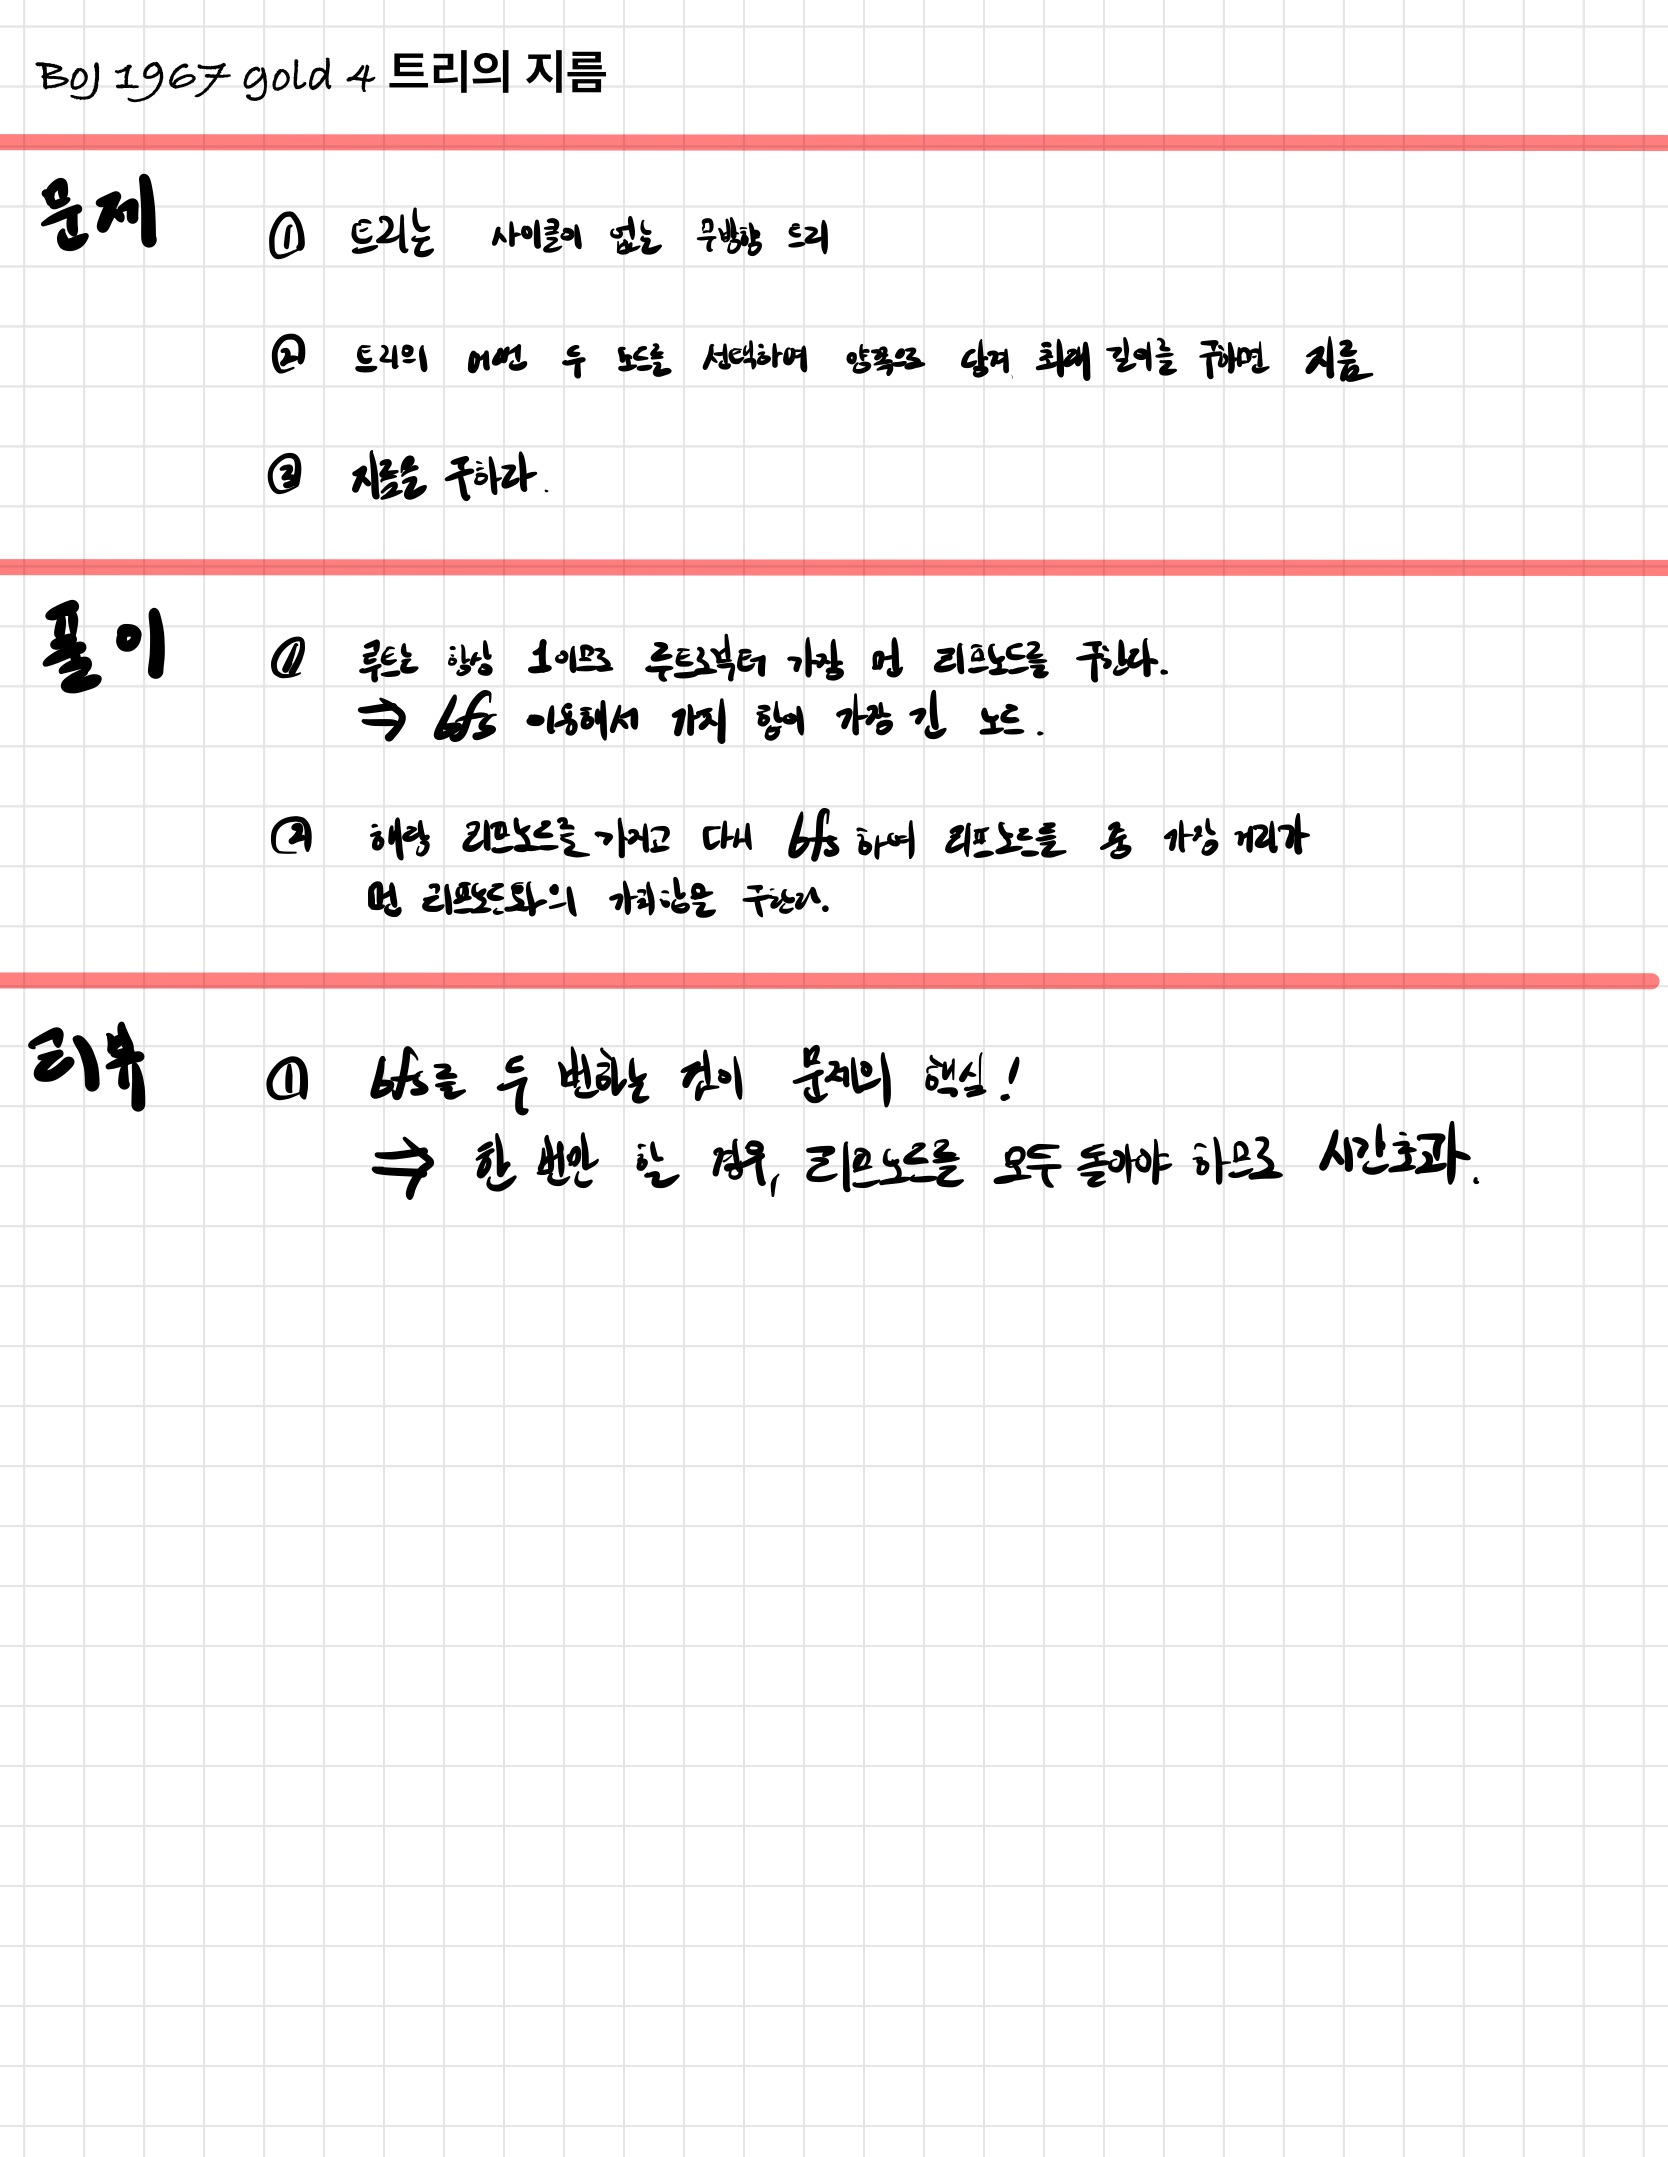 BOJ 1967 gold 4 트리의 지름
문제
① 트리는 사이클이 없는 무방향 트리
② 트리의 어떤 두 노드를 선택하여 양쪽으로 당겨 최대 길이를 구하면 지름
③ 지름을 구하라.
풀이
① 루트는 항상 1이므로 루트로부터 가장 먼 리프노드를 구한다.
⇒ bfs 이용해서 가지 합이 가장 긴 노드.
② 해당 리프노드를 가지고 다시 bfs 하여 리프노드를 중 가장 거리가
먼 리프노드와의 가치합을 구한다.
리뷰
① bfs를 두 번하는 것이 문제의 핵심!
⇒ 한 번만 할 경우, 리프노드를 모두 돌아야 하므로 시간초과.